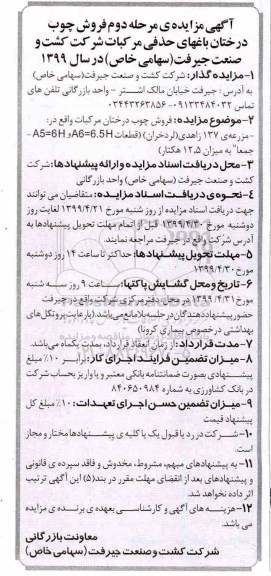 آگهی مزایده‌ی مرحله دوم فروش چوب
درختان باغهای حذفی مرکبات شرکت کشت و
صنعت جیرفت (سهامی خاص) در سال ۱۳۹۹
۱- مزایده گذار: شرکت کشت و صنعت جیرفت (سهامی خاص)
به آدرس: جیرفت خیابان مالک اشتر - واحد بازرگانی تلفن های
تماس ۰۹۱۳۳۴۸۴۰۲۲ - ۰۳۴۴۳۲۶۳۸۵۶
۲- موضوع مزایده: فروش چوب درختان مرکبات واقع در:
- مزرعه‌ی ۱۳۷ زاهدی (لردخزان) (قطعات A5=6H و A6=6.5H -
جمعاً" به میزان ۱۲.۵ هکتار)
۳- محل دریافت اسناد مزایده و ارائه پیشنهادها: شرکت
کشت و صنعت جیرفت (سهامی خاص) واحد بازرگانی
۴- نحوه‌ی دریافت اسناد مزایده: متقاضیان می توانند
جهت دریافت اسناد مزایده از روز شنبه مورخ ۱۳۹۹/۴/۲۱ لغایت روز
دوشنبه مورخ ۱۳۹۹/۴/۳۰ قبل از اتمام مهلت تحویل پیشنهادها به
آدرس شرکت واقع در جیرفت مراجعه نمایند.
۵- مهلت تحویل پیشنهادها: حداکثر تا ساعت ۱۴ روز دوشنبه
مورخ ۱۳۹۹/۴/۳۰
۶- تاریخ و محل گشایش پاکتها: ساعت ۹ روز سه شنبه
مورخ ۱۳۹۹/۴/۳۱ در محل دفتر مرکزی شرکت واقع در جیرفت
حضور پیشنهاد دهندگان در جلسه بلامانع می باشد. (با رعایت پروتکل های
بهداشتی در خصوص بیماری کرونا)
۷- مدت قرارداد: از زمان انعقاد قرارداد، بمدت یکماه می باشد.
۸- میزان تضمین فرایند اجرای کار: برابر ۱۰٪ مبلغ
پیشنهادی بصورت ضمانتنامه بانکی معتبر و یا واریز بحساب شرکت
در بانک کشاورزی به شماره ۸۴۰۶۵۰۹۸۴
۹- میزان تضمین حسن اجرای تعهدات: ۱۰٪ مبلغ کل
پیشنهاد قیمت
۱۰- شرکت در رد یا قبول یک یا کلیه ی پیشنهادها مختار و مجاز
است.
۱۱- به پیشنهادهای مبهم، مشروط، مخدوش و فاقد سپرده ی قانونی
و پیشنهادهای بعد از انقضای مهلت مقرر در بند (۵) این آگهی ترتیب
اثر داده نخواهد شد.
۱۲- هزینه های آگهی و کارشناسی بعهده ی برنده ی مزایده
می باشد.
معاونت بازرگانی
شرکت کشت و صنعت جیرفت (سهامی خاص)